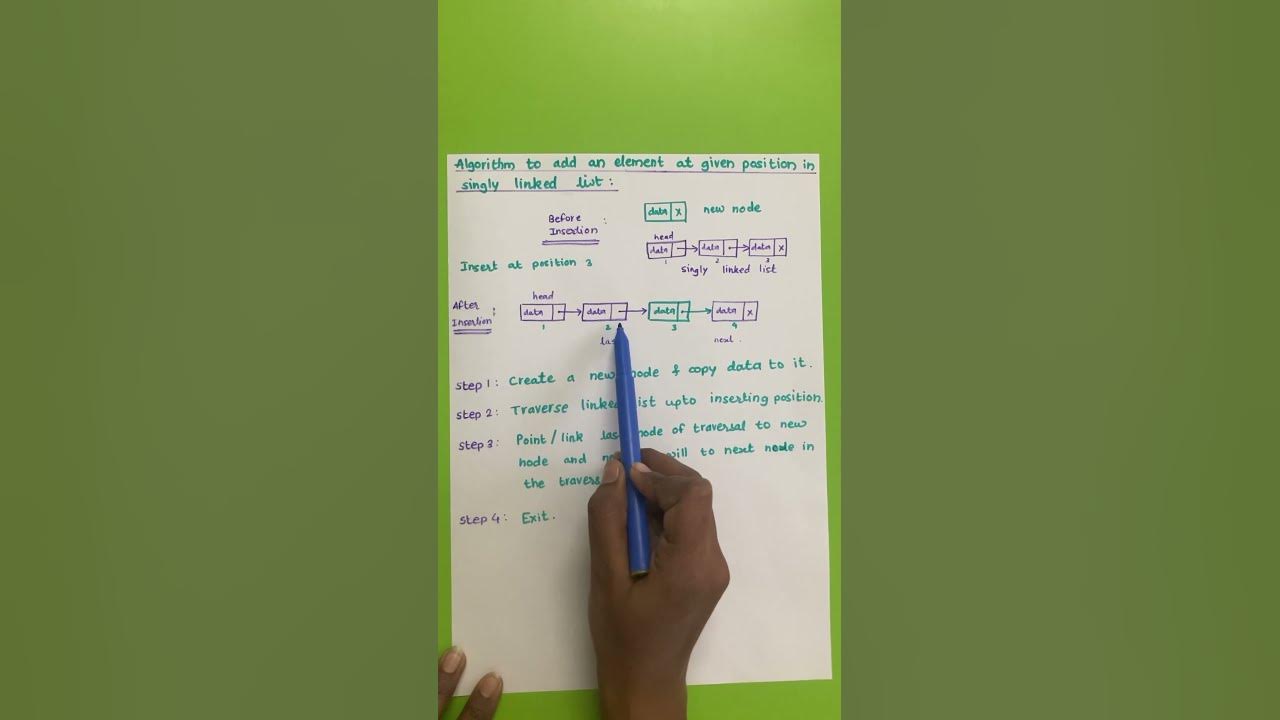 Algorithm to add an element at given position in
singly linked list:
data X new node
Before
Insertion :
head
data data data X
1 2 3
singly linked list
Insert at position 3
After
Insertion :
head
data data data data X
1 2 3 4
next.
Step 1: Create a new node & copy data to it.
Step 2: Traverse linked list upto inserting position.
Step 3: Point/link node of traversal to new
node and will to next node in
the
Step 4: Exit.